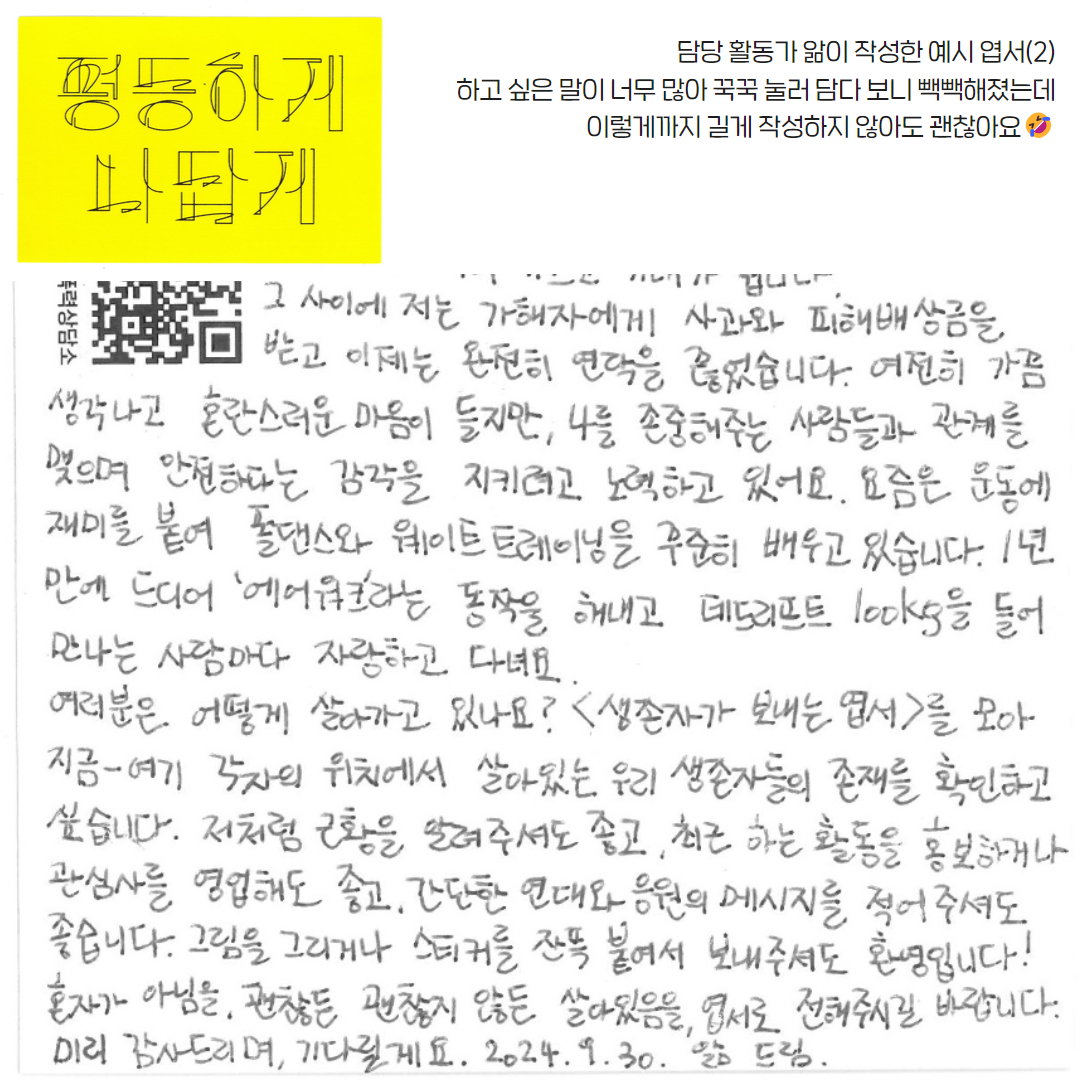 평등하게
나답게
담당 활동가 앎이 작성한 예시 엽서(2)
하고 싶은 말이 너무 많아 꾹꾹 눌러 담다 보니 빽빽해졌는데
이렇게까지 길게 작성하지 않아도 괜찮아요🤣
폭력상담소
그 사이에 저는 가해자에게 사과와 피해배상금을
받고 이제는 완전히 연락을 끊었습니다. 여전히 가끔
생각나고 혼란스러운 마음이 들지만, 나를 존중해주는 사람들과 관계를
맺으며 안전하다는 감각을 지키려고 노력하고 있어요. 요즘은 운동에
재미를 붙여 폴댄스와 웨이트트레이닝을 꾸준히 배우고 있습니다. 1년
만에 드디어 '에어워크'라는 동작을 해내고 데드리프트 100kg을 들어
만나는 사람마다 자랑하고 다녀요.
여러분은 어떻게 살아가고 있나요? <생존자가 보내는 엽서>를 모아
지금-여기 각자의 위치에서 살아있는 우리 생존자들의 존재를 확인하고
싶습니다. 저처럼 근황을 알려주셔도 좋고, 최근 하는 활동을 홍보하거나
관심사를 영업해도 좋고, 간단한 연대와 응원의 메시지를 적어주셔도
좋습니다. 그림을 그리거나 스티커를 잔뜩 붙여서 보내주셔도 환영입니다!
혼자가 아님을, 괜찮든 괜찮지 않든 살아있음을, 엽서로 전해주시길 바랍니다.
미리 감사드리며, 기다릴게요. 2024.9.30. 앎 드림.